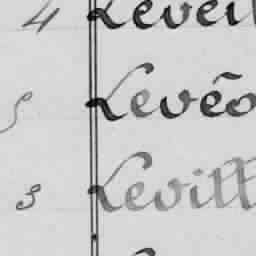 4 Leveil
5 Levêo
3 Levill